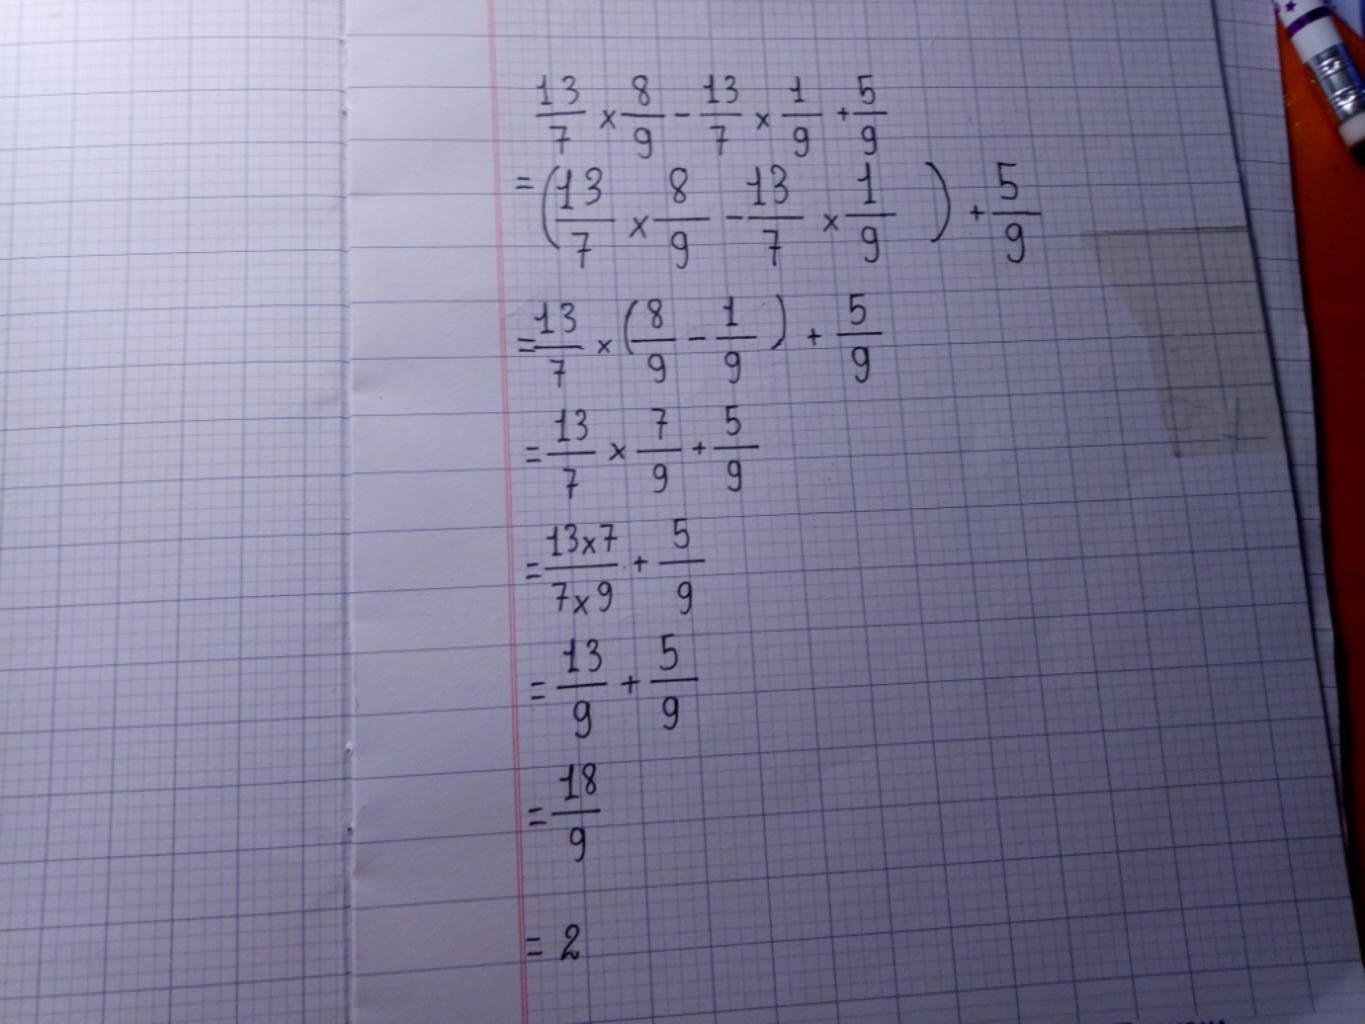 13/7 × 8/9 - 13/7 × 1/9 + 5/9
= (13/7 × 8/9 - 13/7 × 1/9) + 5/9
= 13/7 × (8/9 - 1/9) + 5/9
= 13/7 × 7/9 + 5/9
= 13×7/7×9 + 5/9
= 13/9 + 5/9
= 18/9
= 2